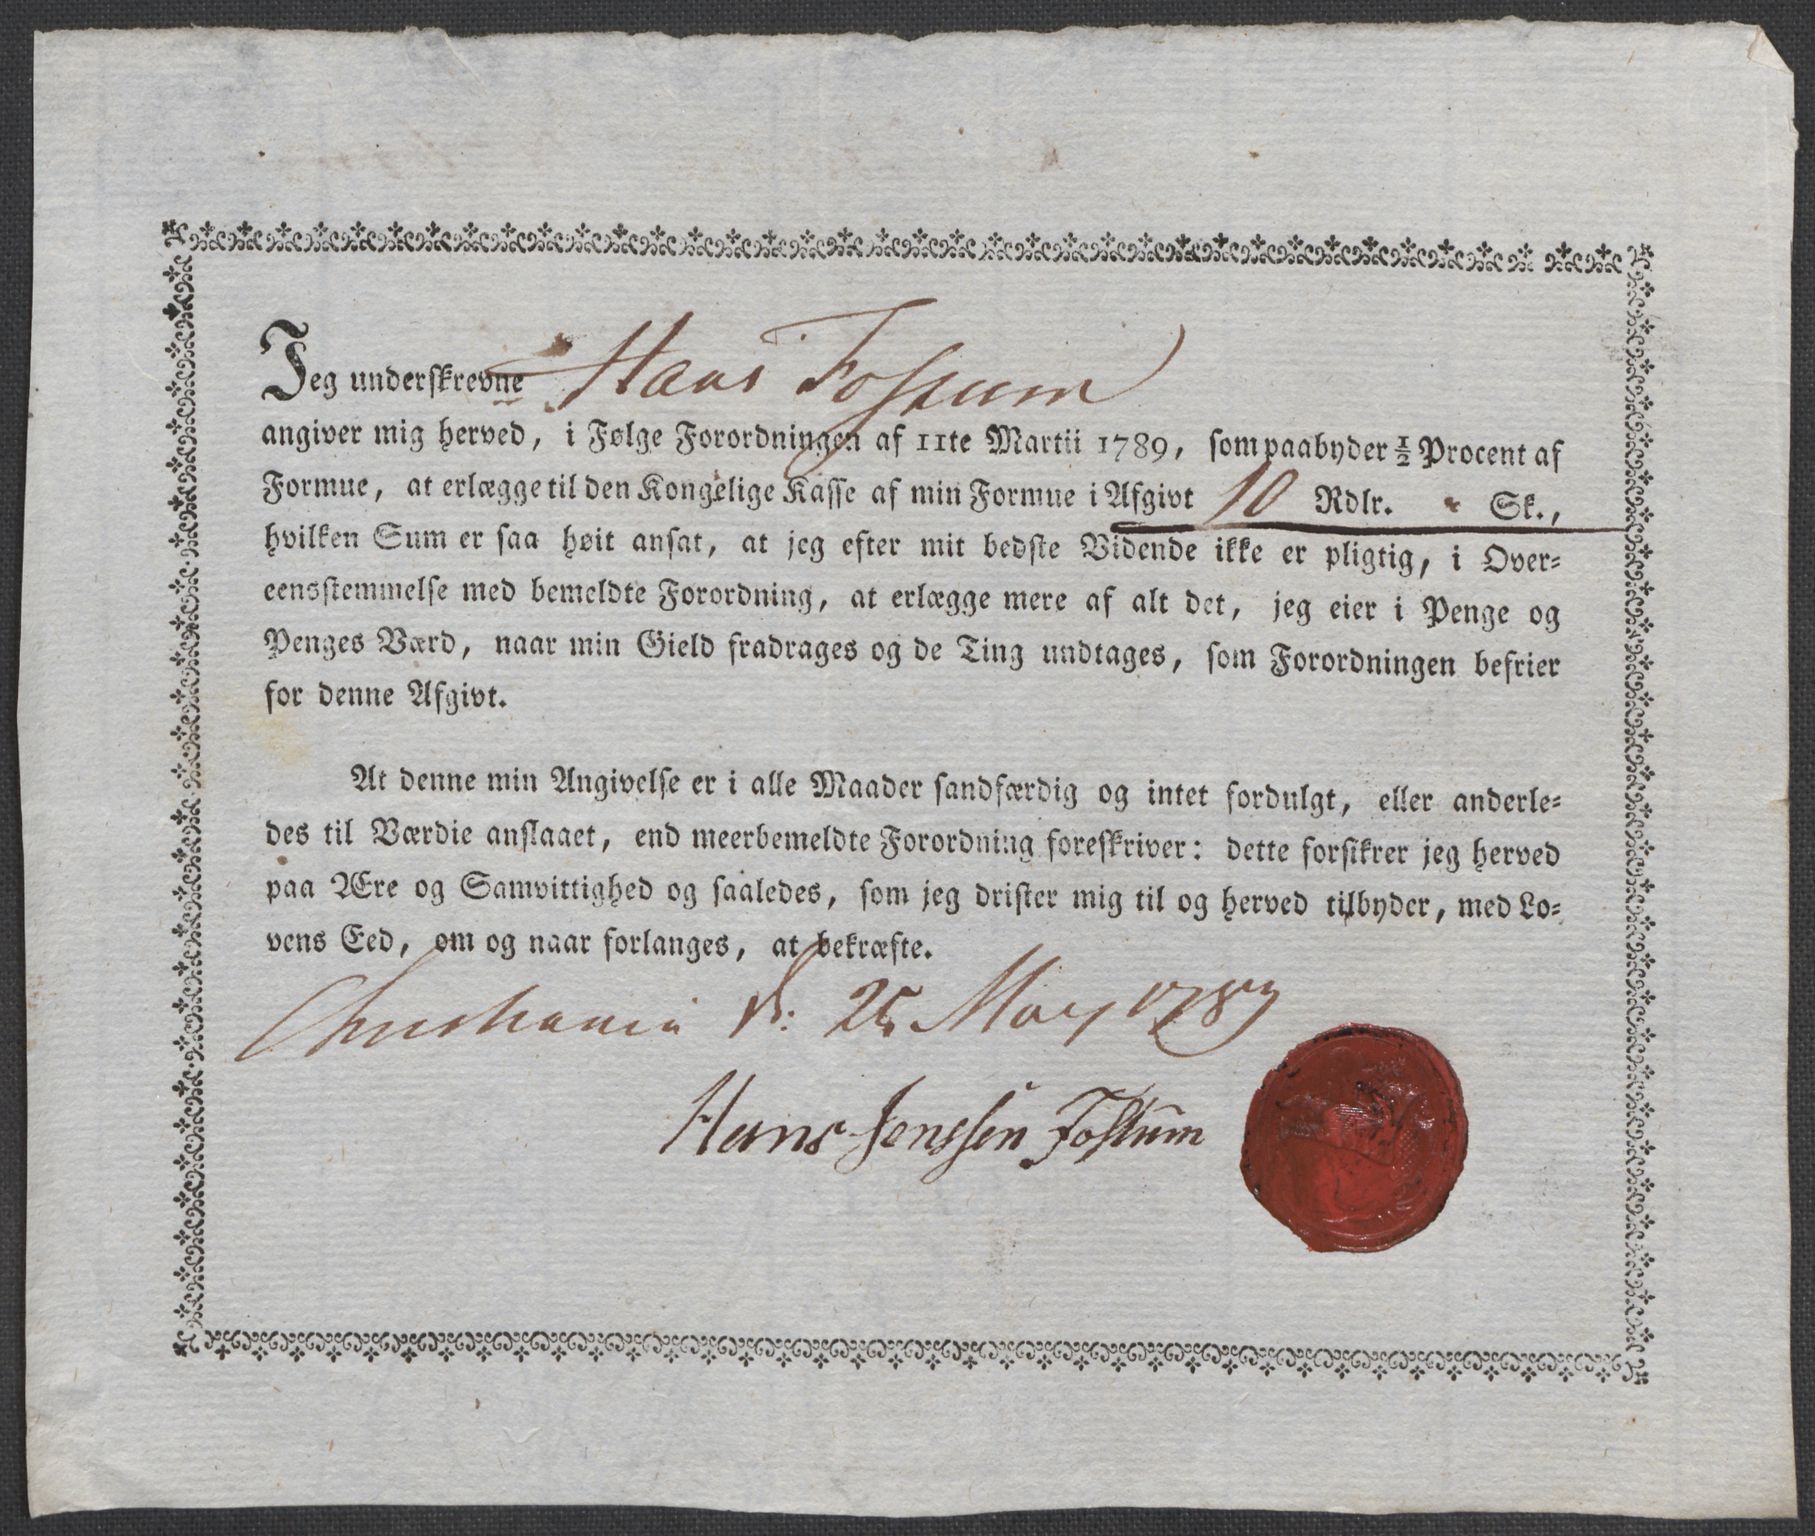 Jeg underskrevne Hans Fossum
angiver mig herved, i Følge Forordningen af 11te Martii 1789, som paabyder ½ Procent af
Formue, at erlægge til den Kongelige Kasse af min Formue i Afgivt 10 Rdlr. " Sk.,
hvilken Sum er saa høit ansat, at jeg efter mit bedste Vidende ikke er pligtig, i Over=
eensstemmelse med bemeldte Forordning, at erlægge mere af alt det, jeg eier i Penge og
Penges Værd, naar min Gield fradrages og de Ting undtages, som Forordningen befrier
for denne Afgivt.
At denne min Angivelse er i alle Maader sandfærdig og intet fordulgt, eller anderle=
des til Værdie anslaaet, end meerbemeldte Forordning foreskriver: dette forsikrer jeg herved
paa Ære og Samvittighed og saaledes, som jeg drister mig til og herved tilbyder, med Lo=
vens Eed, om og naar forlanges, at bekræfte.
Christiania d: 25 May 1789
Hans Jenssen Fossum